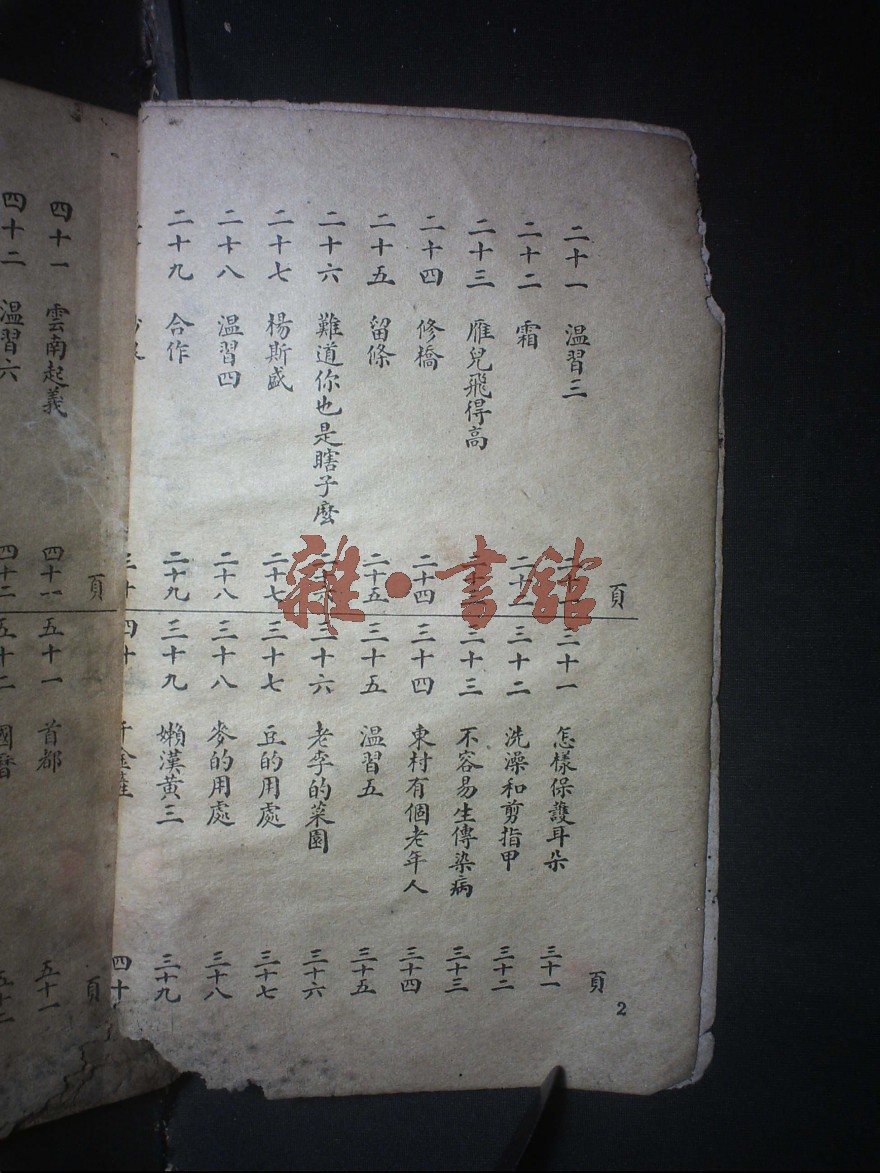 頁
二十一 温習三 二十一
二十二 霜 二十二
二十三 雁兒飛得高 二十三
二十四 修橋 二十四
二十五 留條 二十五
二十六 難道你也是瞎子麼 二十六
二十七 楊斯盛 二十七
二十八 温習四 二十八
二十九 合作 二十九
三十
頁
三十一 怎樣保護耳朵 三十一
三十二 洗澡和剪指甲 三十二
三十三 不容易生傳染病 三十三
三十四 東村有個老年人 三十四
三十五 温習五 三十五
三十六 老李的菜園 三十六
三十七 豆的用處 三十七
三十八 麥的用處 三十八
三十九 嬾漢黃三 三十九
四十 四十
2
頁
四十一 雲南起義 四十一
四十二 温習六 四十二
頁
五十一 首都 五十一
五十二 國曆 五十二
雜·書館